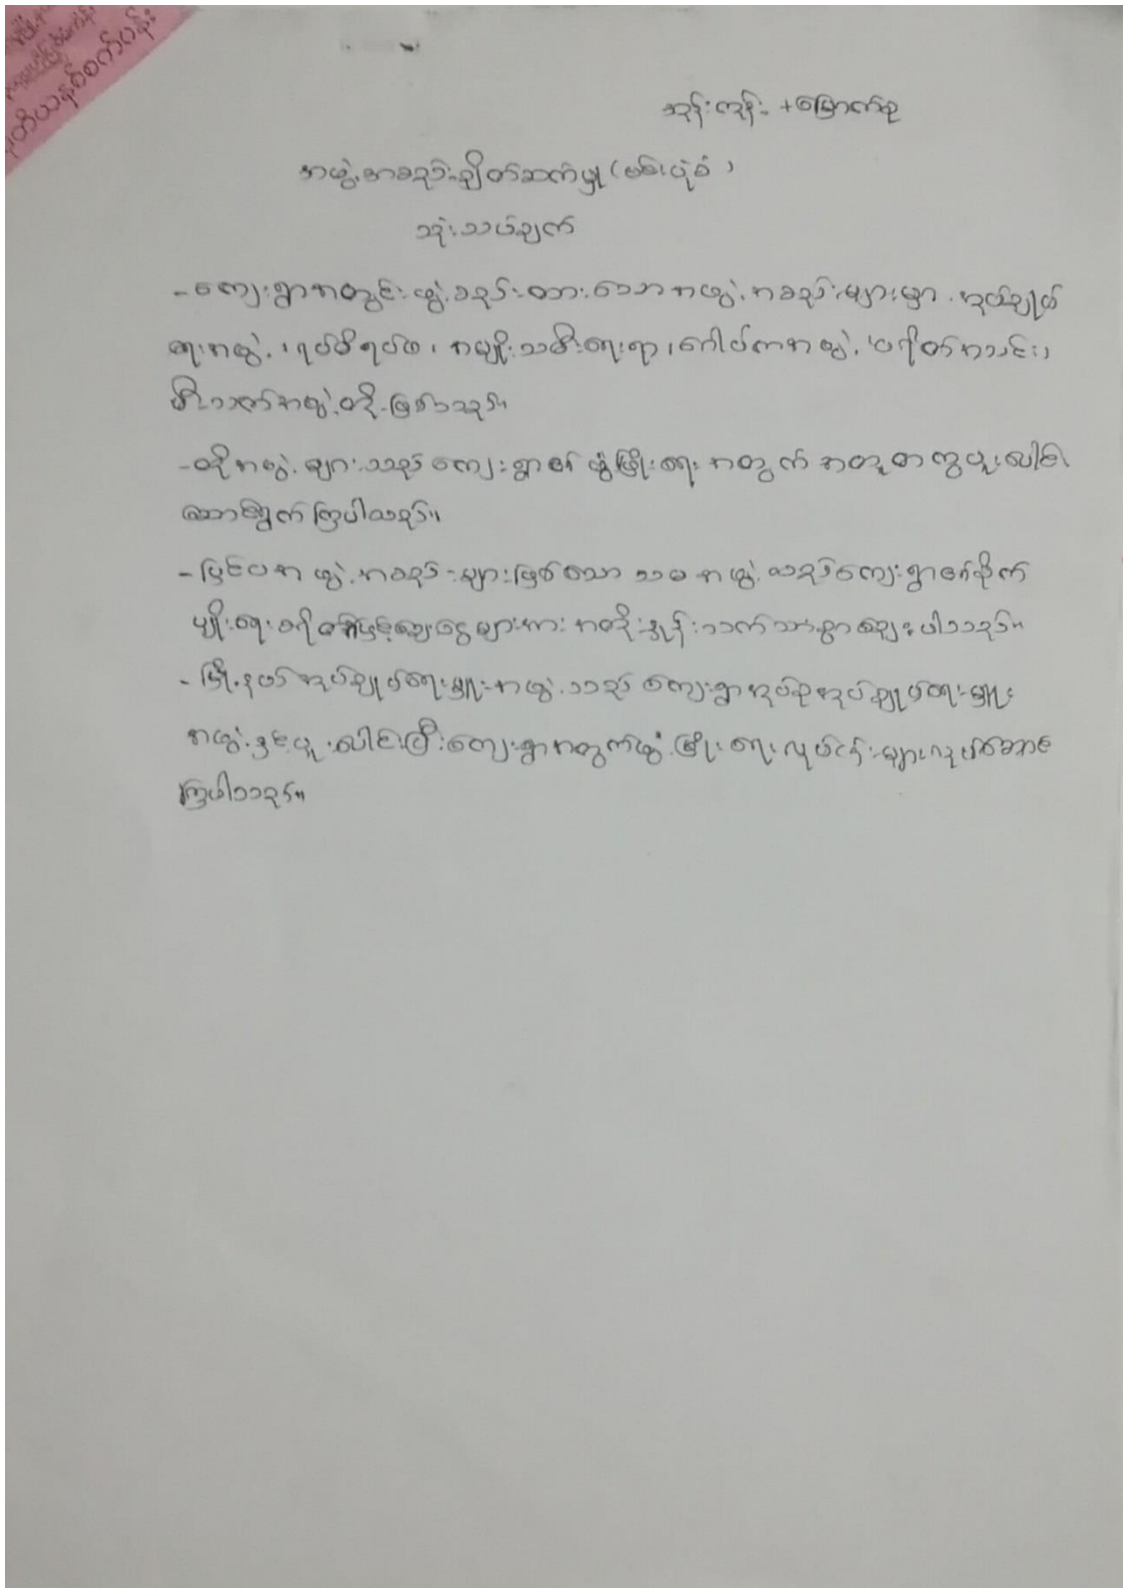 ဒုတိယနှစ်စက်ပန်း
အုန်းကုန်း +မြောက်စု
အဖွဲ့အစည်းချိတ်ဆက်မှု (မင်းပုံစံ)
သုံးသပ်ချက်
- ကျေးရွာအတွင်းဖွဲ့စည်းထားသောအဖွဲ့အစည်းများမှာ အုပ်ချုပ်
ရေးအဖွဲ့၊ ရပ်မိရပ်ဖ၊ အမျိုးသမီးရေးရာ၊ ဂေါပကအဖွဲ့၊ ပရိတ်အသင်း၊
မီးသတ်အဖွဲ့တို့ဖြစ်သည်။
- ထိုအဖွဲ့များသည် ကျေးရွာ၏ ဖွံ့ဖြိုးရေးအတွက် အတူတကွပူးပေါင်း
ဆောင်ရွက်ကြပါသည်။
- ပြင်ပအဖွဲ့အစည်းများဖြစ်သော သမအဖွဲ့သည်ကျေးရွာ၏စိုက်
ပျိုးရေးစရိတ်ချေးငွေများအား အတိုးနှုန်းသက်သာစွာချေးပါသည်။
- မြို့နယ်အုပ်ချုပ်ရေးမှူးအဖွဲ့သည် ကျေးရွာအုပ်စုအုပ်ချုပ်ရေးမှူး
အဖွဲ့နှင့်ပူးပေါင်းပြီးကျေးရွာအတွက်ဖွံ့ဖြိုးရေးလုပ်ငန်းများလုပ်ဆောင်
ကြပါသည်။